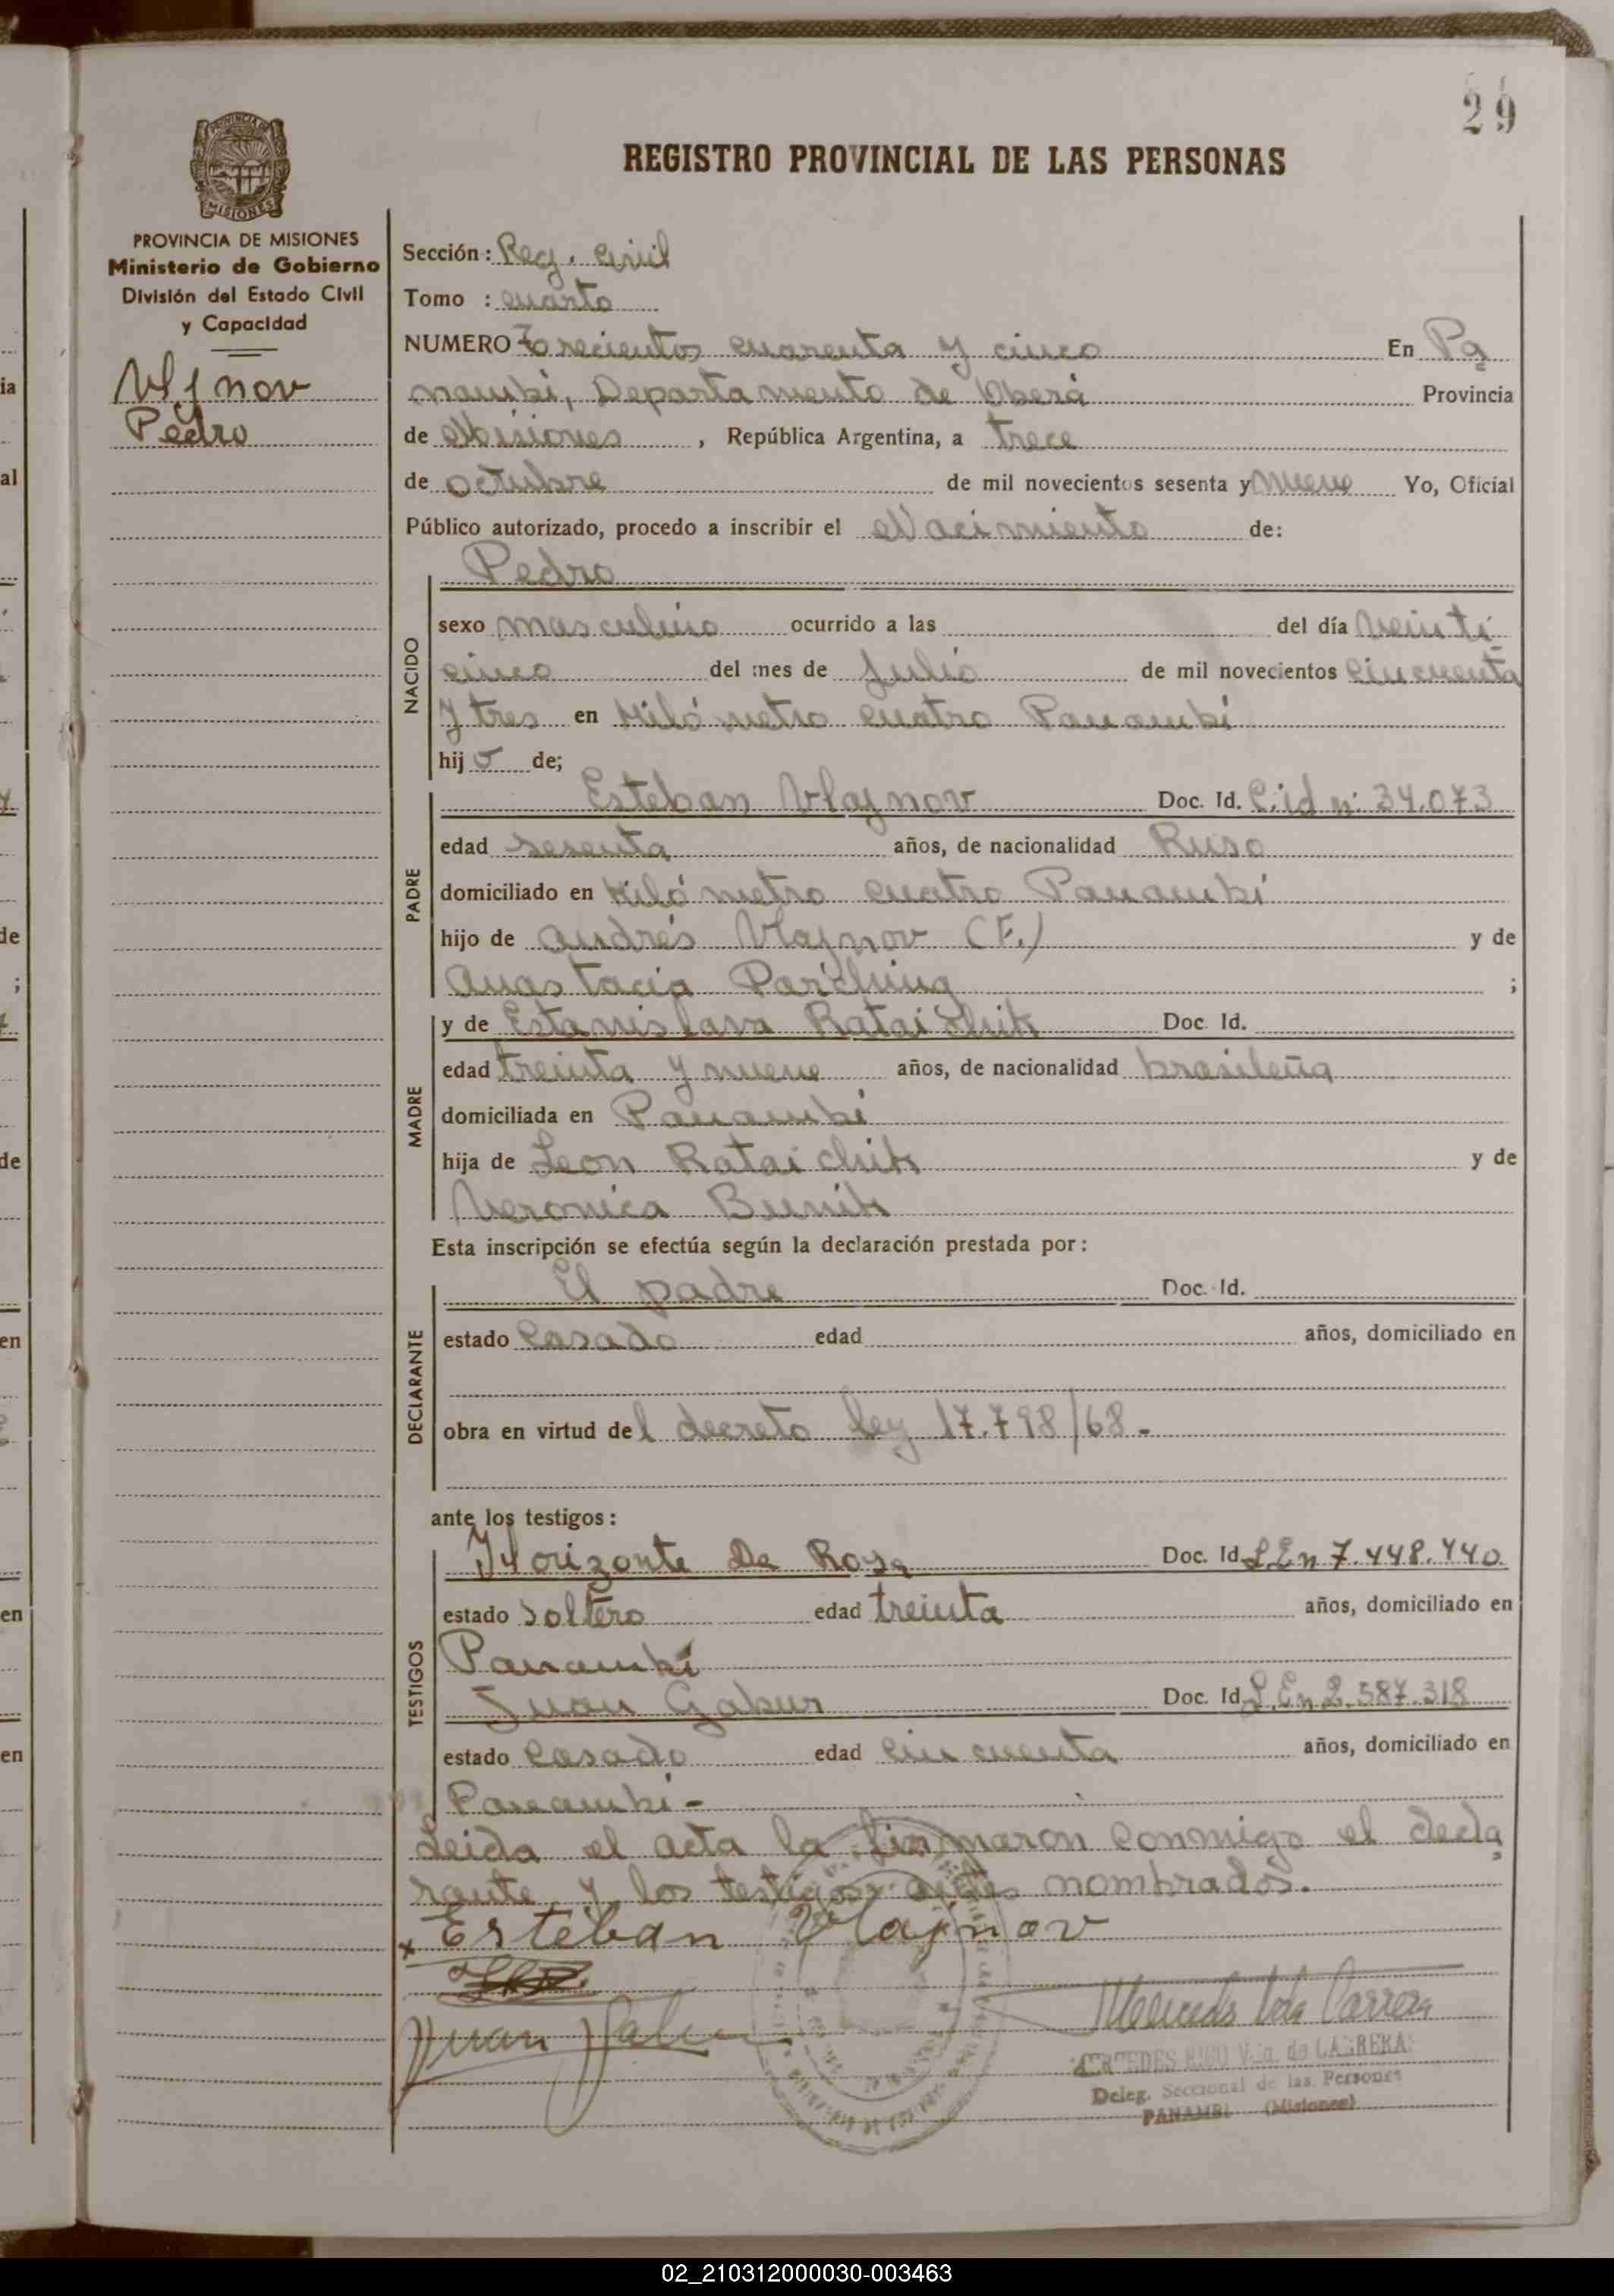 29
REGISTRO PROVINCIAL DE LAS PERSONAS
PROVINCIA DE MISIONES
Ministerio de Gobierno
División del Estado Civil
y Capacidad
Vlajnov
Pedro
Sección: Reg. Civil
Tomo : cuarto
NUMERO Trecientos cuarenta y cinco En Pa
nambí, Departamento de Oberá Provincia
de Misiones, República Argentina, a trece
de octubre de mil novecientos sesenta y nueve Yo, Oficial
Público autorizado, procedo a inscribir el Nacimiento de:
Pedro
NACIDO
sexo masculino ocurrido a las del día veinti
cinco del mes de Julio de mil novecientos cincuenta
y tres en Kilómetro cuatro Panambí
hijo de;
PADRE
Esteban Vlajnov Doc. Id. C.id n: 34.073
edad sesenta años, de nacionalidad Ruso
domiciliado en Kilómetro cuatro Panambí
hijo de Andrés Vlajnov (F.) y de
Anastacia ;
MADRE
y de Estanislava Rataichik Doc. Id.
edad treinta y nueve años, de nacionalidad brasileña
domiciliada en Panambí
hija de Leon Rataichik y de
Veronica Bunik
Esta inscripción se efectúa según la declaración prestada por:
DECLARANTE
El padre Doc. Id.
estado Casado edad años, domiciliado en
obra en virtud del decreto ley 17.798/68.-
ante los testigos:
TESTIGOS
Horizonte Da Rosa Doc. Id L.E n 7.448.440
estado soltero edad treinta años, domiciliado en
Panambí
Juan Gabur Doc. Id L.E n 2.587.318
estado Casado edad cincuenta años, domiciliado en
Panambí-
Leida el acta la firmaron conmigo el decla
rante y los testigos antes nombrados.
x Esteban Vlajnov
Juan
Mercedes Vda Carrera
MERCEDES Vda. de CABRERA
Deleg. Seccional de las Personas
PANAMBI (Misiones)
02_210312000030-003463